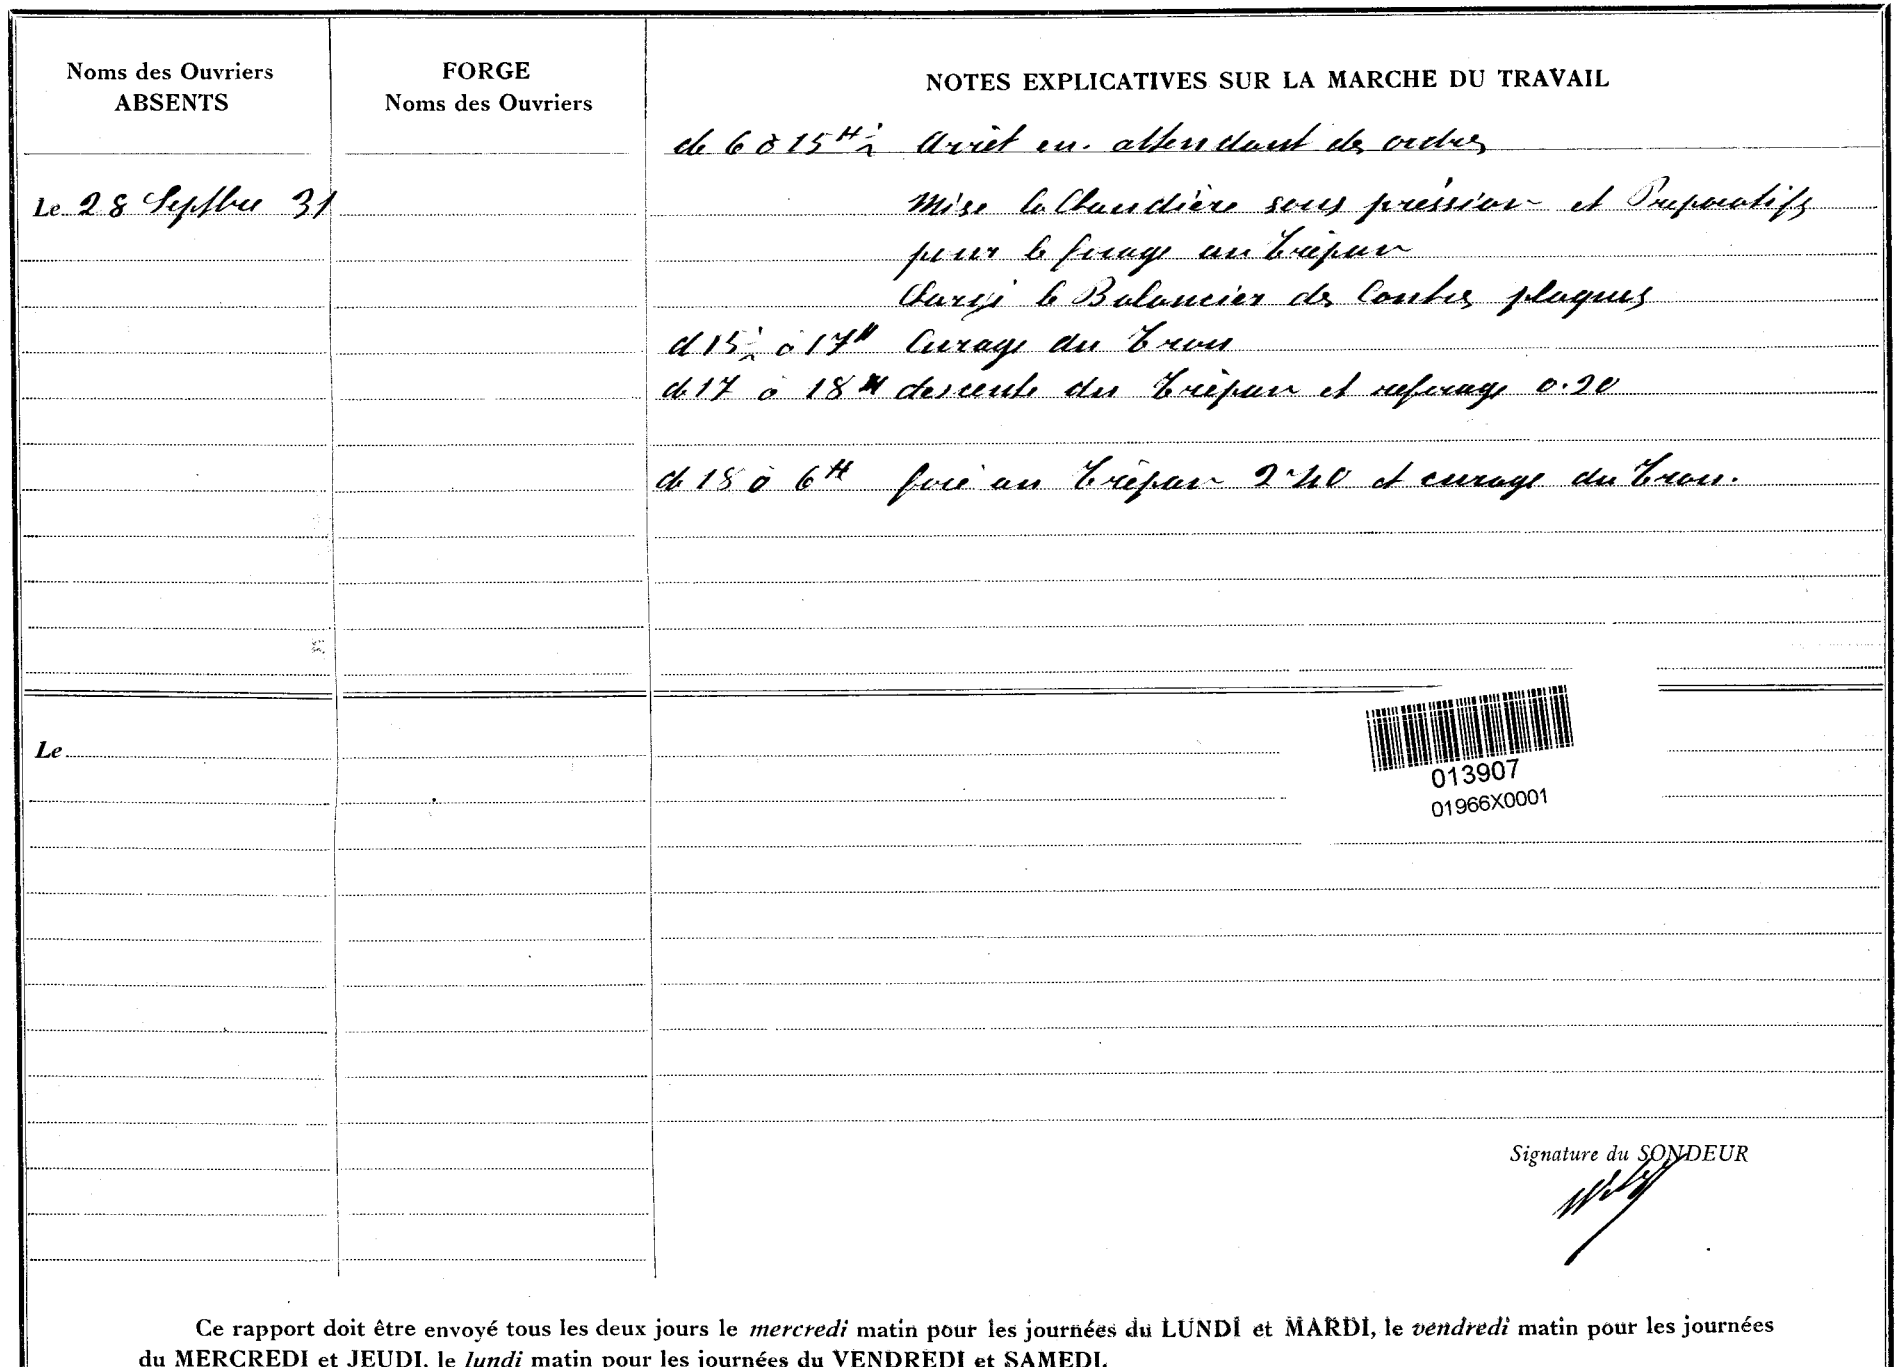 Noms des Ouvriers
ABSENTS
FORGE
Noms des Ouvriers
NOTES EXPLICATIVES SUR LA MARCHE DU TRAVAIL
de 6 à 15H ½ Arrêt en attendant des ordres
Le 28 Septbre 31
Mise la Chaudière sous préssion et Préparatifs
pour le forage au Trépan
Chargé le Balancier des Contres plaques
d 15 ½ à 17H Curage du Trou
de 17 à 18H descente du Trépan et reforage 0.20
de 18 à 6H foré au Trépan 2m40 et curage du Trou.
Le
013907
01966X0001
Signature du SONDEUR
Ce rapport doit être envoyé tous les deux jours le mercredi matin pour les journées du LUNDI et MARDI, le vendredi matin pour les journées
du MERCREDI et JEUDI, le lundi matin pour les journées du VENDREDI et SAMEDI.